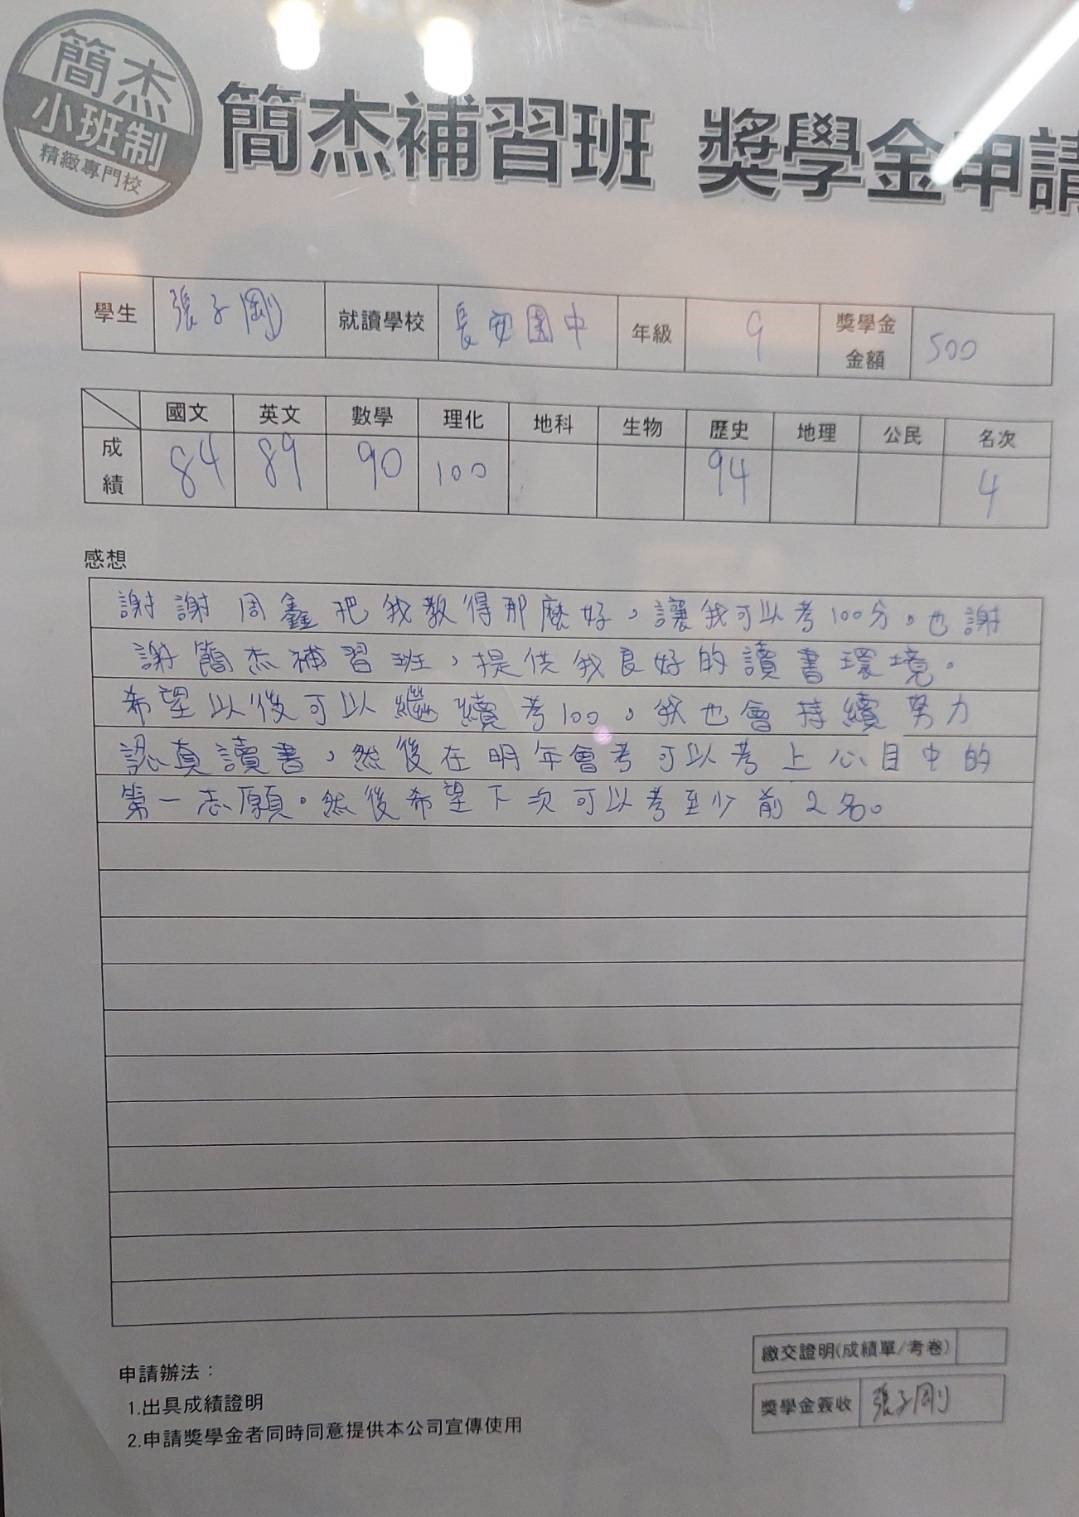 簡杰
小班制
精緻專門校
簡杰補習班 獎學金申請
學生 張子剛 就讀學校 長安國中 年級 9 獎學金金額 500
國文 英文 數學 理化 地科 生物 歷史 地理 公民 名次
成績 84 89 90 100 94 4
感想
謝謝周鑫把我教得那麼好，讓我可以考100分。也謝
謝簡杰補習班，提供我良好的讀書環境。
希望以後可以繼續考100，我也會持續努力
認真讀書，然後在明年會考可以考上心目中的
第一志願。然後希望下次可以考至少前2名。
申請辦法：
1.出具成績證明
2.申請獎學金者同時同意提供本公司宣傳使用
繳交證明(成績單/考卷)
獎學金簽收 張子剛